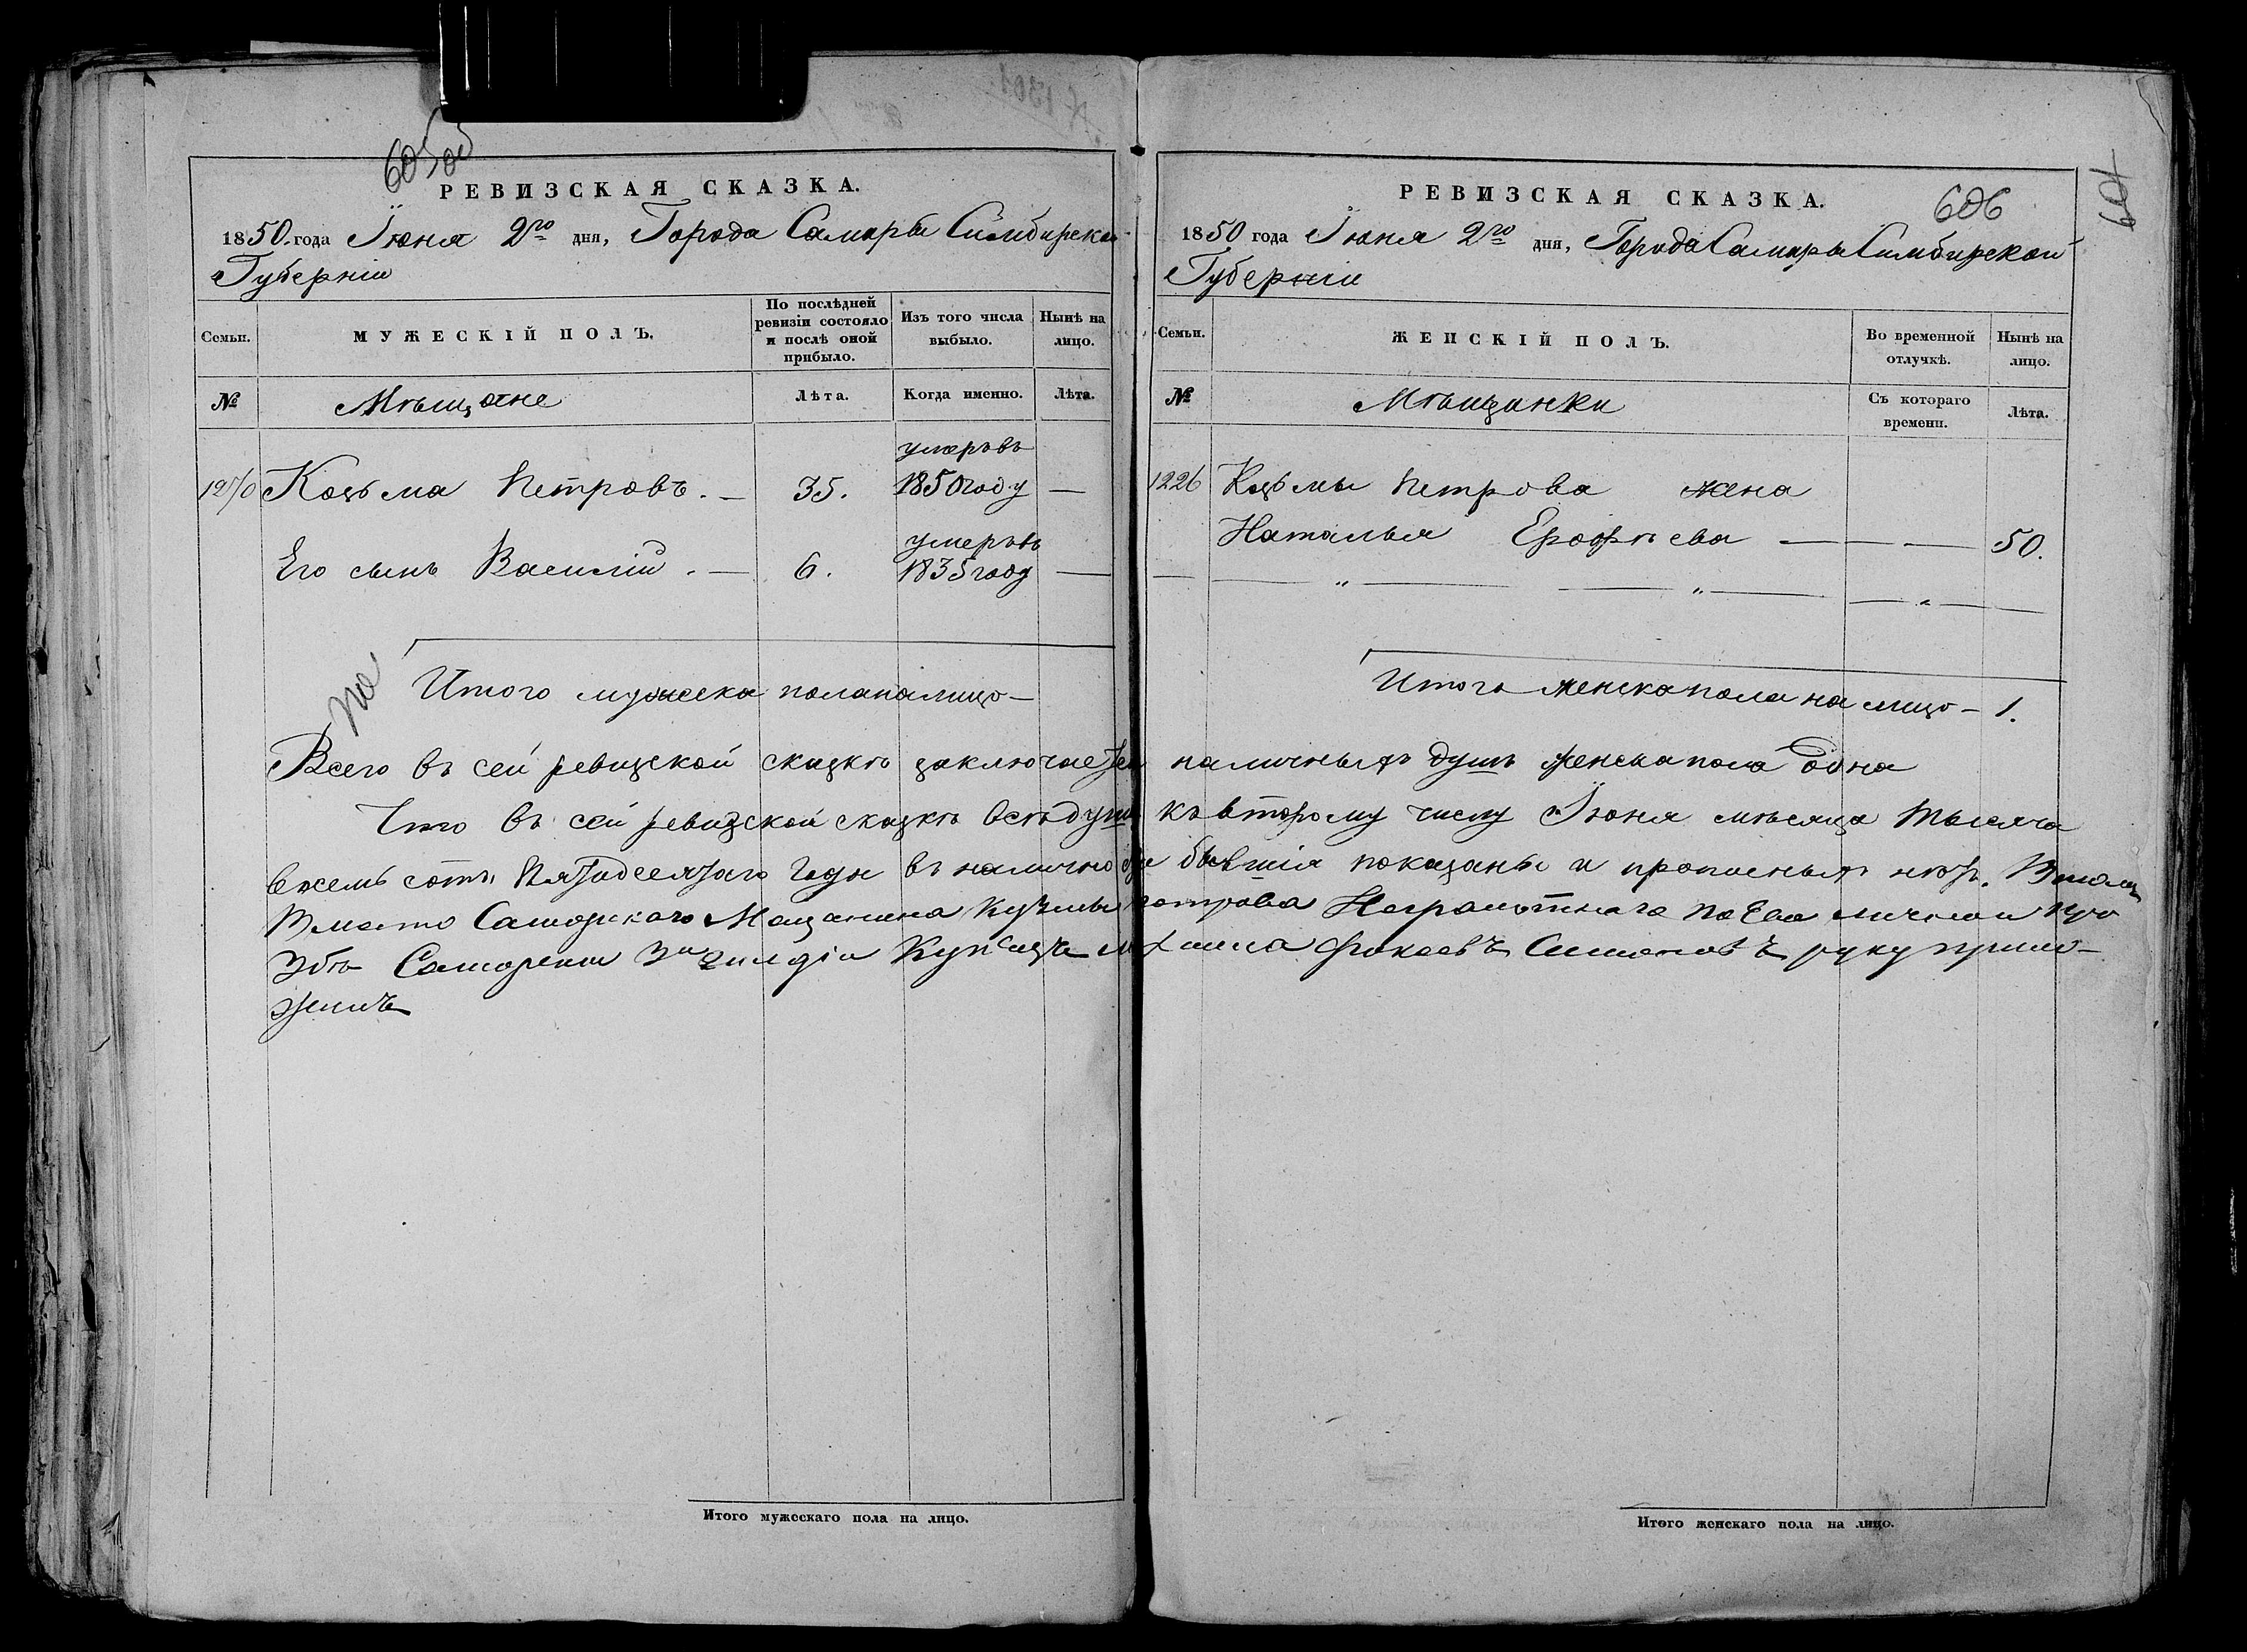 605об
РЕВИЗСКАЯ СКАЗКА.
1850. года Іюня 2го дня, Города Самары Симбирской
Губерніи
Семьи.
МУЖЕСКІЙ ПОЛЪ.
По послѣдней ревизіи состояло и послѣ оной прибыло.
Изъ того числа выбыло.
Нынѣ на лицо.
№
Мѣщане
Лѣта.
Когда именно.
Лѣта.
1270 Козьма Петровъ. — 35. умеръ въ 1850 году —
Его сынъ Василій. — 6. умеръ въ 1835 году —
Итого мужеска пола на лицо —
606
601
РЕВИЗСКАЯ СКАЗКА.
1850 года Іюня 2го дня, Города Самары Симбирской
Губерніи
Семьи.
ЖЕНСКІЙ ПОЛЪ.
Во временной отлучкѣ.
Нынѣ на лицо.
№
Мѣщанки
Съ котораго времени.
Лѣта.
1226 Козьмы Петрова жена
Наталья Ерофѣева — — — 50.
Итого женска пола на лицо — 1.
Всего въ сей ревизской сказкѣ заключается наличныхъ душъ женска пола одна
Что въ сей ревизской сказкѣ всѣ души къ второму числу Іюня мѣсяца тысяча
восемь сотъ пятидесятаго года въ наличности бывшія показаны и прописныхъ нѣтъ.
Вместо Самарскаго Мещанина Кузьмы Петрова Неграмотнаго по Ево личной про
збѣ Самарской 3й гилдіи Купца Фокаевъ Симоновъ руку прило-
жилъ
Итого мужескаго пола на лицо.
Итого женскаго пола на лицо.